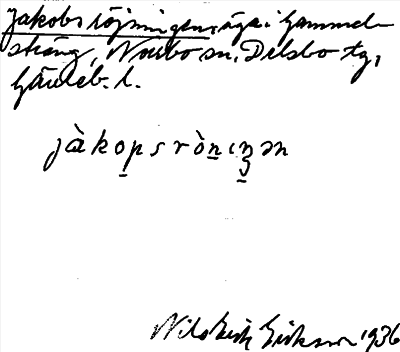 Jakobsröjningen, äga i Gammel-
sträng, Norrbo sn, Delsbo tg,
Gävleb. l.
jàkopsrònıŋən
Nils Erik Eriksson 1936